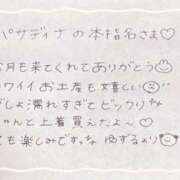 パサディナの本指名さま♡
月も来てくれてありがとう
ワイイお土産も嬉しい
しょ濡れすぎてビックリ
ゃんと上着買えだよ〜♡
も楽しみですっな ゆずるより